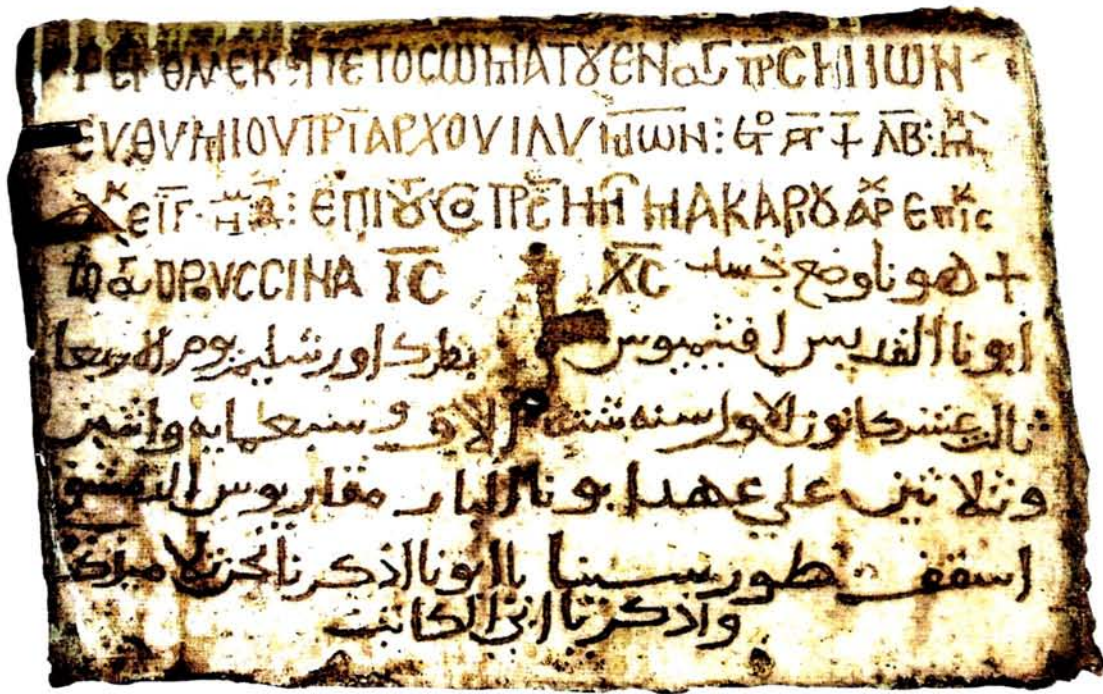 ΤΕ ΤΟ CΩΜΑ ΤȣΕΝ ΠΡC ΗΜΩΝ
ΕΥΘΥΜΙΟΥ ΤΡΙΑΡΧΟΥ ΙΛΥΜΩΝ : ΛΒ :
ΕΠΙ Τȣ ΠΡC ΗΜ ΜΑΚΑΡΙȣ ΑΡΧ ΕΠΙCΚ
ΟΡΟΥC CΙΝΑ ΙC ΧC + هونا وضع جسد
ابونا القديس افتيميوس بطرك اورشليم يوم الاربعا
ثالث عشر كانون الاول سنه ستة الاف وسبعمايه واثنين
وثلاثين علي عهد ابونا البار مقاريوس الدمشقي
اسقف طور سينا يا ابونا اذكرنا نحن تلاميذك
واذكرنا الكاتب